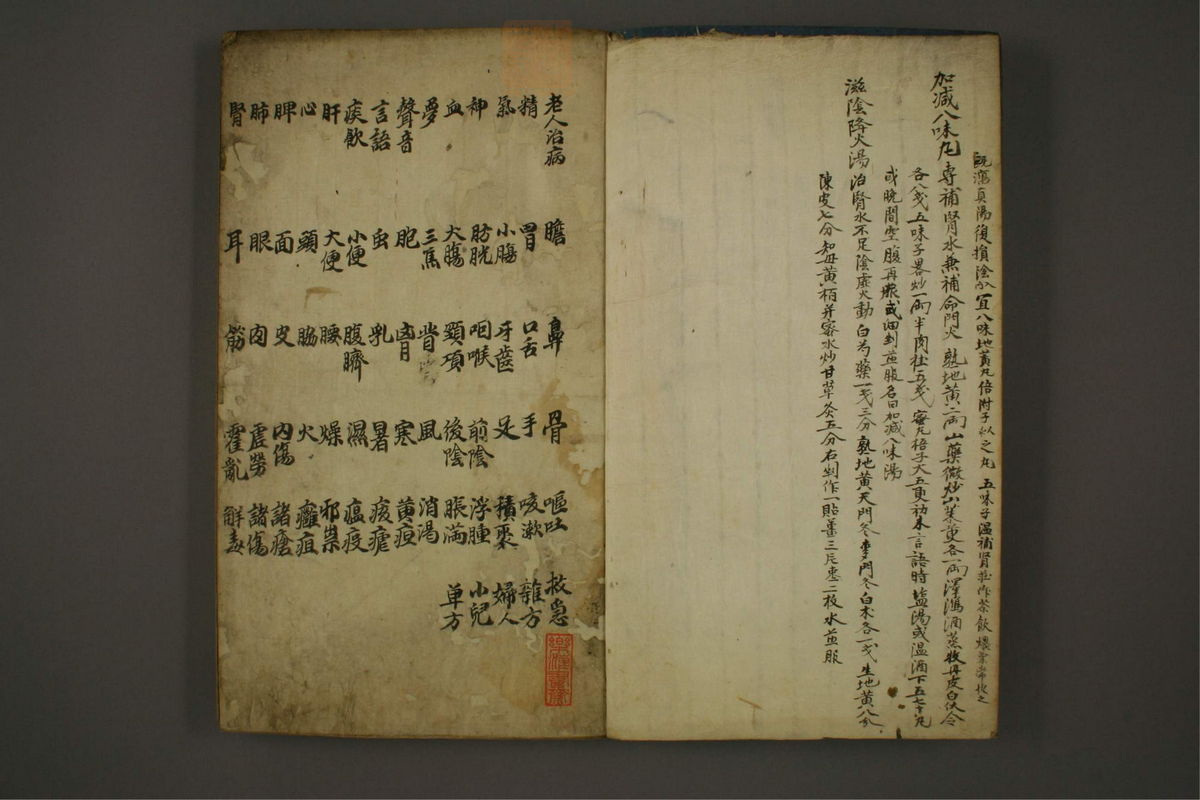 既瀉真陽復損陰分 宜八味地黃丸倍附子以之丸 五味子温補腎 作茶飲
加減八味丸 專補腎水兼補命門火 熟地黃二兩山藥微炒山茱萸各一兩澤瀉酒蒸牧丹皮白伏令
各八戔五味子畧炒一兩半肉桂五戔 蜜丸梧子大五更初未言語時塩湯或温酒下五七十丸
或晩間空腹再服或細剉煎服名曰加減八味湯
滋陰降火湯 治腎水不足陰虛火動 白芍藥一戔三分熟地黃天門冬麥門冬白朮各一戔生地黃八分
陳皮七分知母黃栢并蜜水炒甘草灸五分右剉作一貼薑三片棗二枚水煎服
老人治病 精 氣 神 血 夢 聲音 言語 痰飲 肝 心 脾 肺 腎
膽 胃 小腸 膀胱 大腸 三焦 胞 虫 小便 大便 頭 面 眼 耳
鼻 口舌 牙齒 咽喉 頸項 背 胷 乳 腹臍 腰 脇 皮 肉 筋
骨 手 足 前陰 後陰 風 寒 暑 濕 燥 火 内傷 虛勞 霍亂
嘔吐 咳嗽 積聚 浮腫 脹滿 消渴 黃疸 痎瘧 瘟疫 邪祟 癰疽 諸瘡 諸傷 解毒
救急 雜方 婦人 小兒 単方